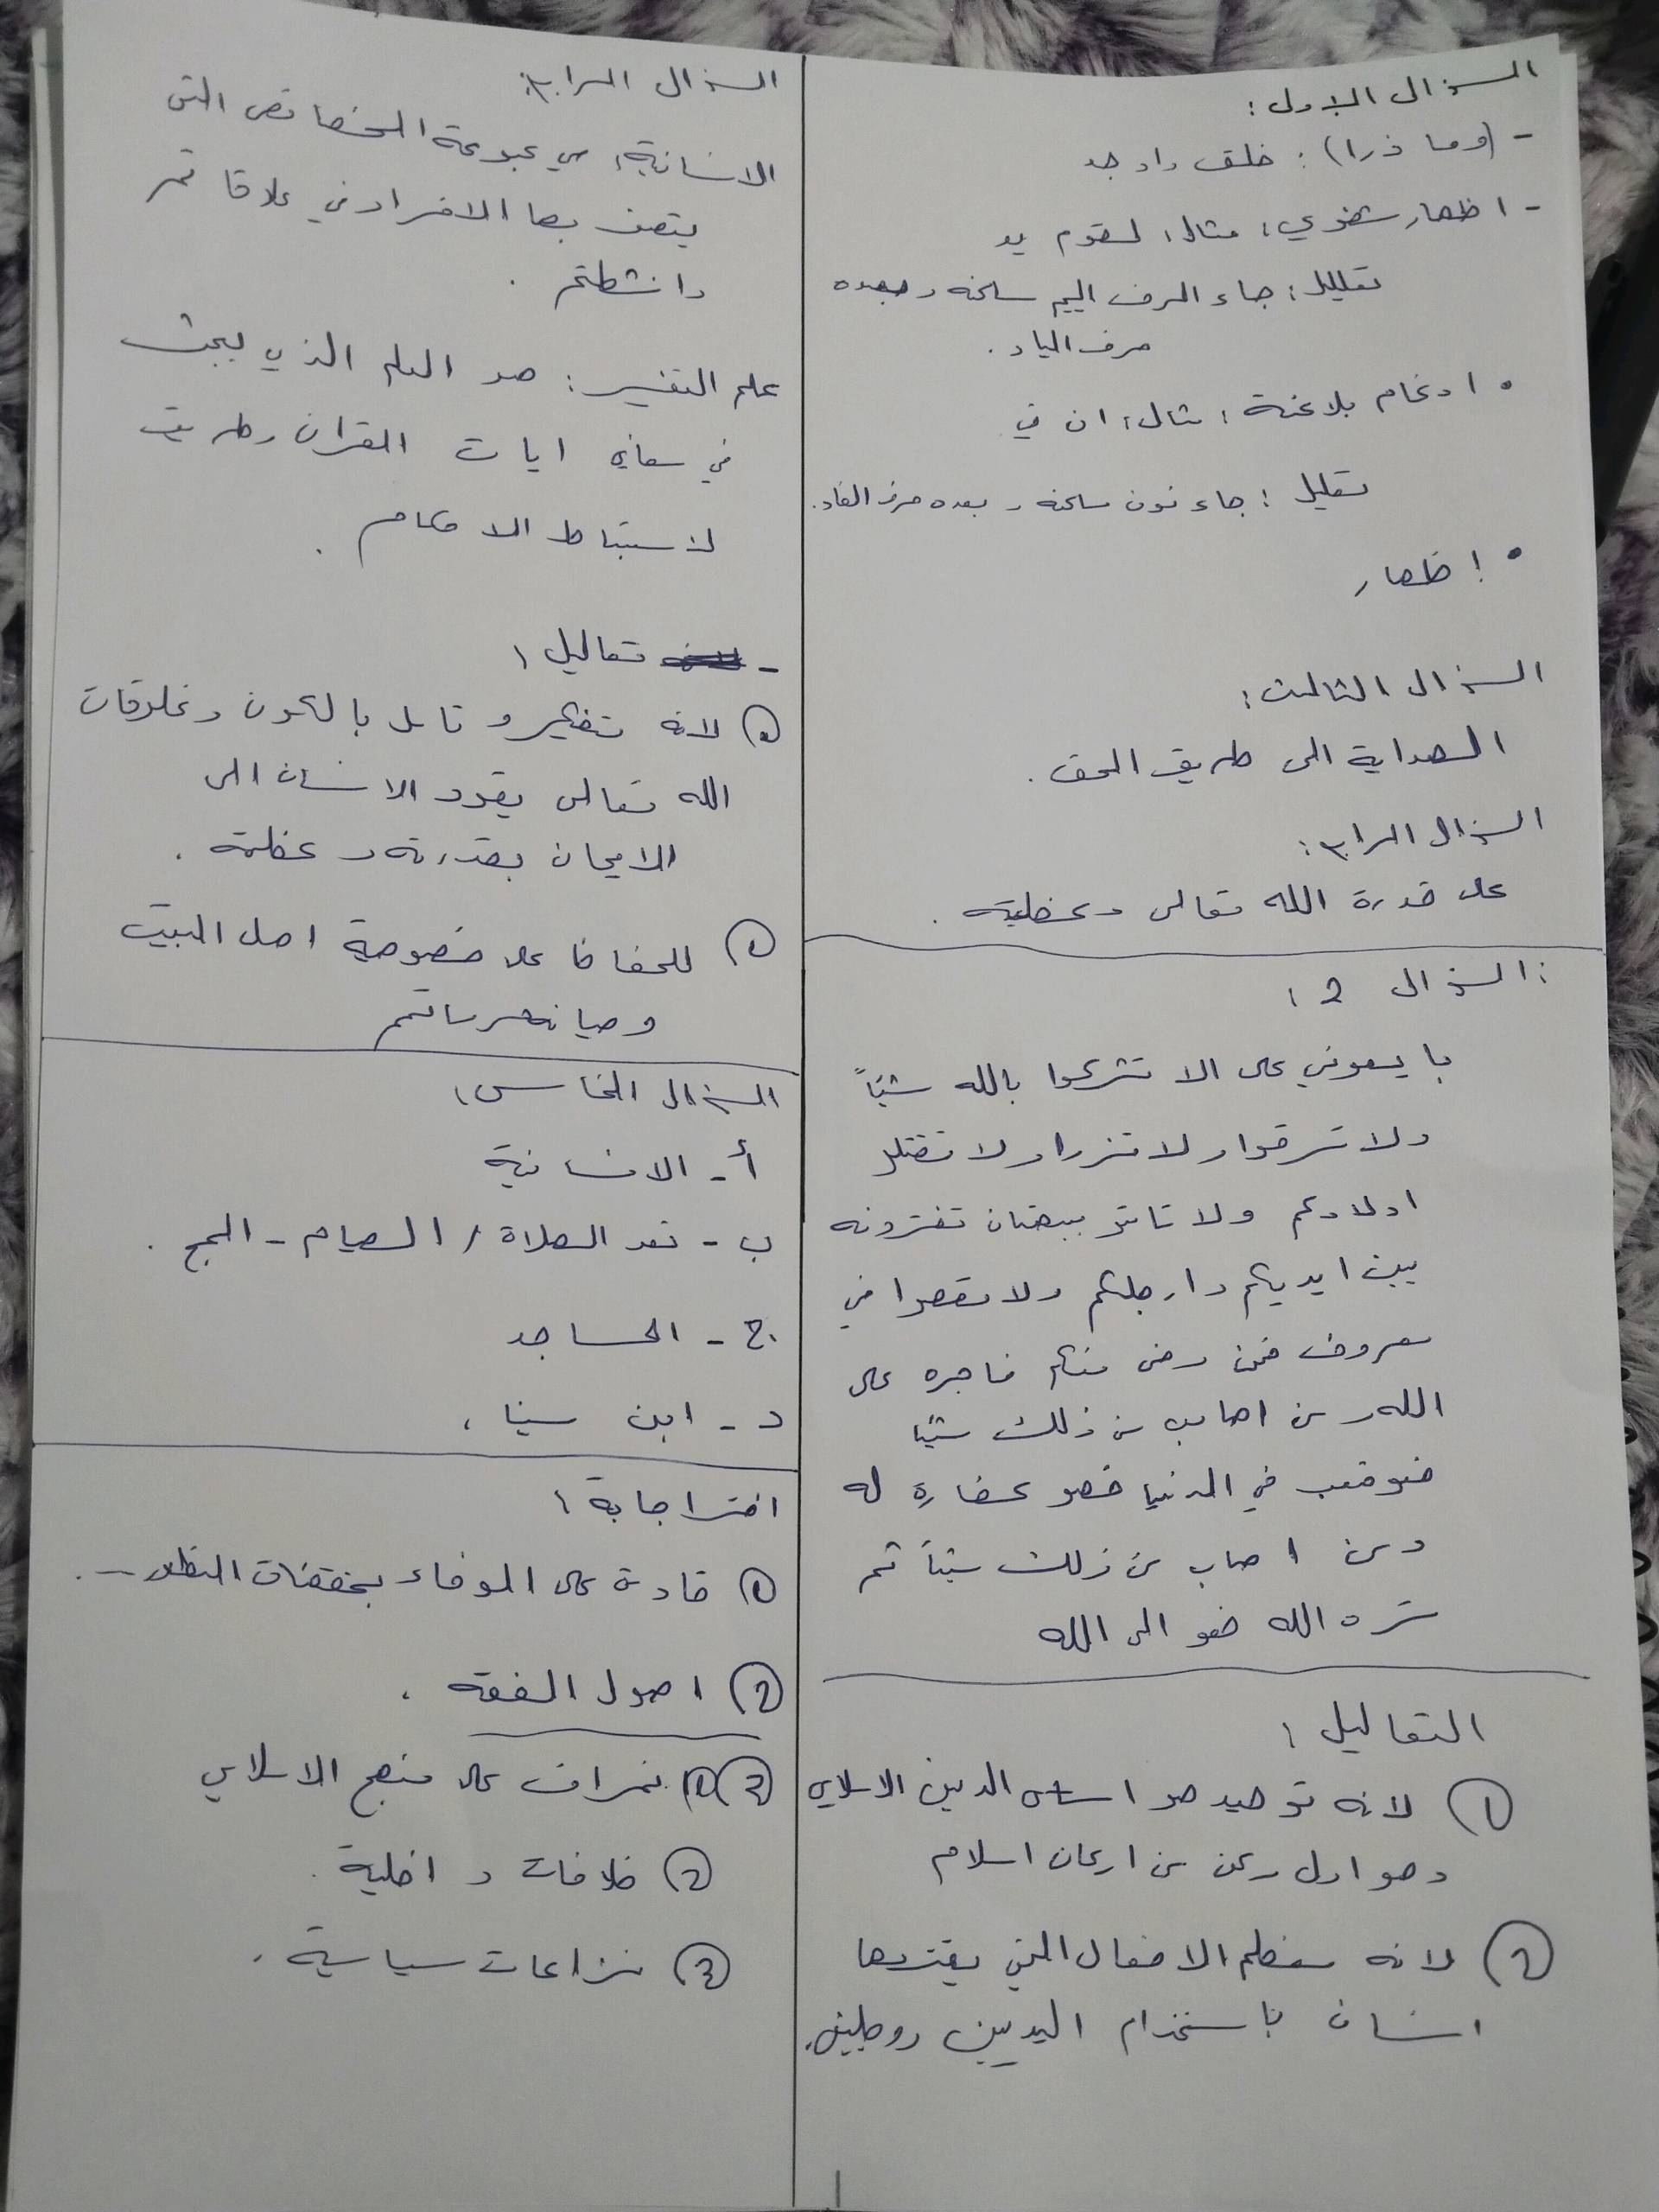 السؤال الاول :
- (وما ذرا) : خلق واوجد
- اظهار شفوي : مثال : لقوم يد
تعليل : جاء الرف الميم ساكنه وبعده
حرف الياء .
• ادغام بلا غنة : مثال : ان في
تعليل : جاء نون ساكنه و بعده حرف الفاء .
• إظهار
السؤال الثالث :
الهداية الى طريق الحق .
السؤال الرابع :
على قدرة الله تعالى وعظمته .
السؤال 2 :
بايعوني على الا تشركوا بالله شيئاً
ولا تسرقوا ولا تزنوا ولا تقتلو
اولادكم ولا تاتو ببهتان تفترونه
بين ايديكم وارجلكم ولا تعصوا في
معروف فمن وفى منكم فاجره على
الله ومن اصاب من ذلك شيئا
فعوقب في الدنيا فهو كفارة له
ومن اصاب من ذلك شيئاً ثم
ستره الله فهو الى الله
التعاليل :
1 لانه توحيد هو اساس الدين الاسلامي
وهو اول ركن من اركان اسلام
2 لانه معظم الافعال التي يفتريها
انسان باستخدام اليدين ورجلين .
السؤال الرابع :
الانسانية : هي مجموعة الخصائص التي
يتصف بها الافراد في علاقاتهم
وانشطتهم .
علم التفسير : هو العلم الذي يبحث
في معاني ايات القران وطريقة
لاستنباط الاحكام .
- تعاليل :
لانه تفكير و تامل بالكون ومخلوقات
الله تعالى يقود الانسان الى
الايمان بقدرته وعظمته .
للحفاظ على خصوصية اهل البيت
وصيانه حرماتهم
السؤال الخامس :
أ - الانسانية
ب - تعد الصلاة / الصيام - الحج .
ج - المساجد
د - ابن سينا .
اختر اجابة :
1 قادرة على الوفاء بمقتضيات التطور .
2 اصول الفقه .
3 1 انحراف على منهج الاسلامي
2 خلافات داخلية .
3 نزاعات سياسية .